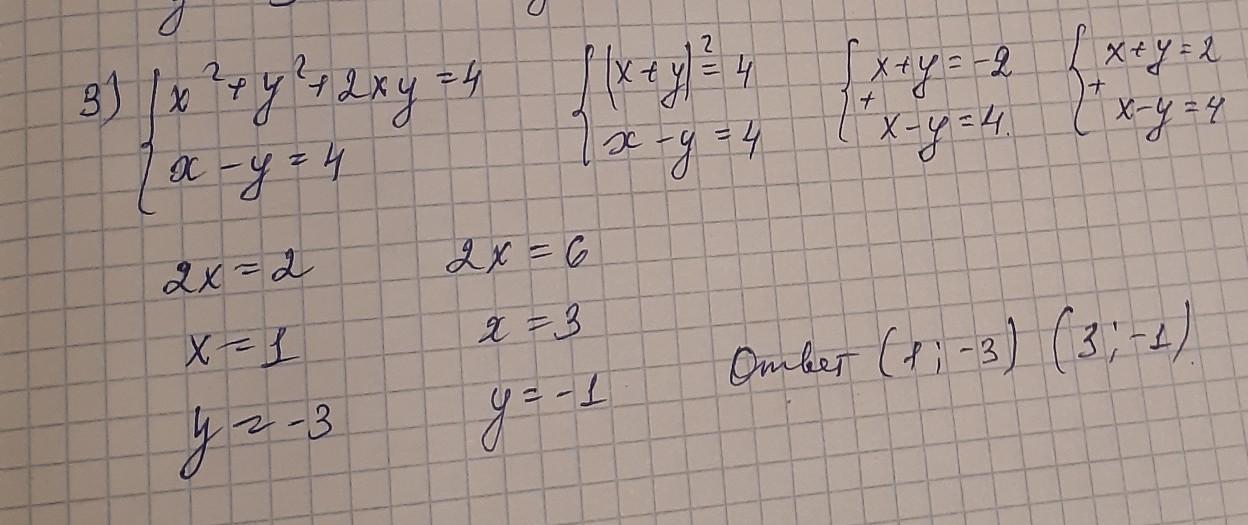 3) { x² + y² + 2xy = 4    { (x + y)² = 4    { x + y = -2    { x + y = 2
x - y = 4    x - y = 4    + x - y = 4.    + x - y = 4
2x = 2    2x = 6
x = 1    x = 3
y = -3    y = -1    Ответ (1; -3) (3; -1).